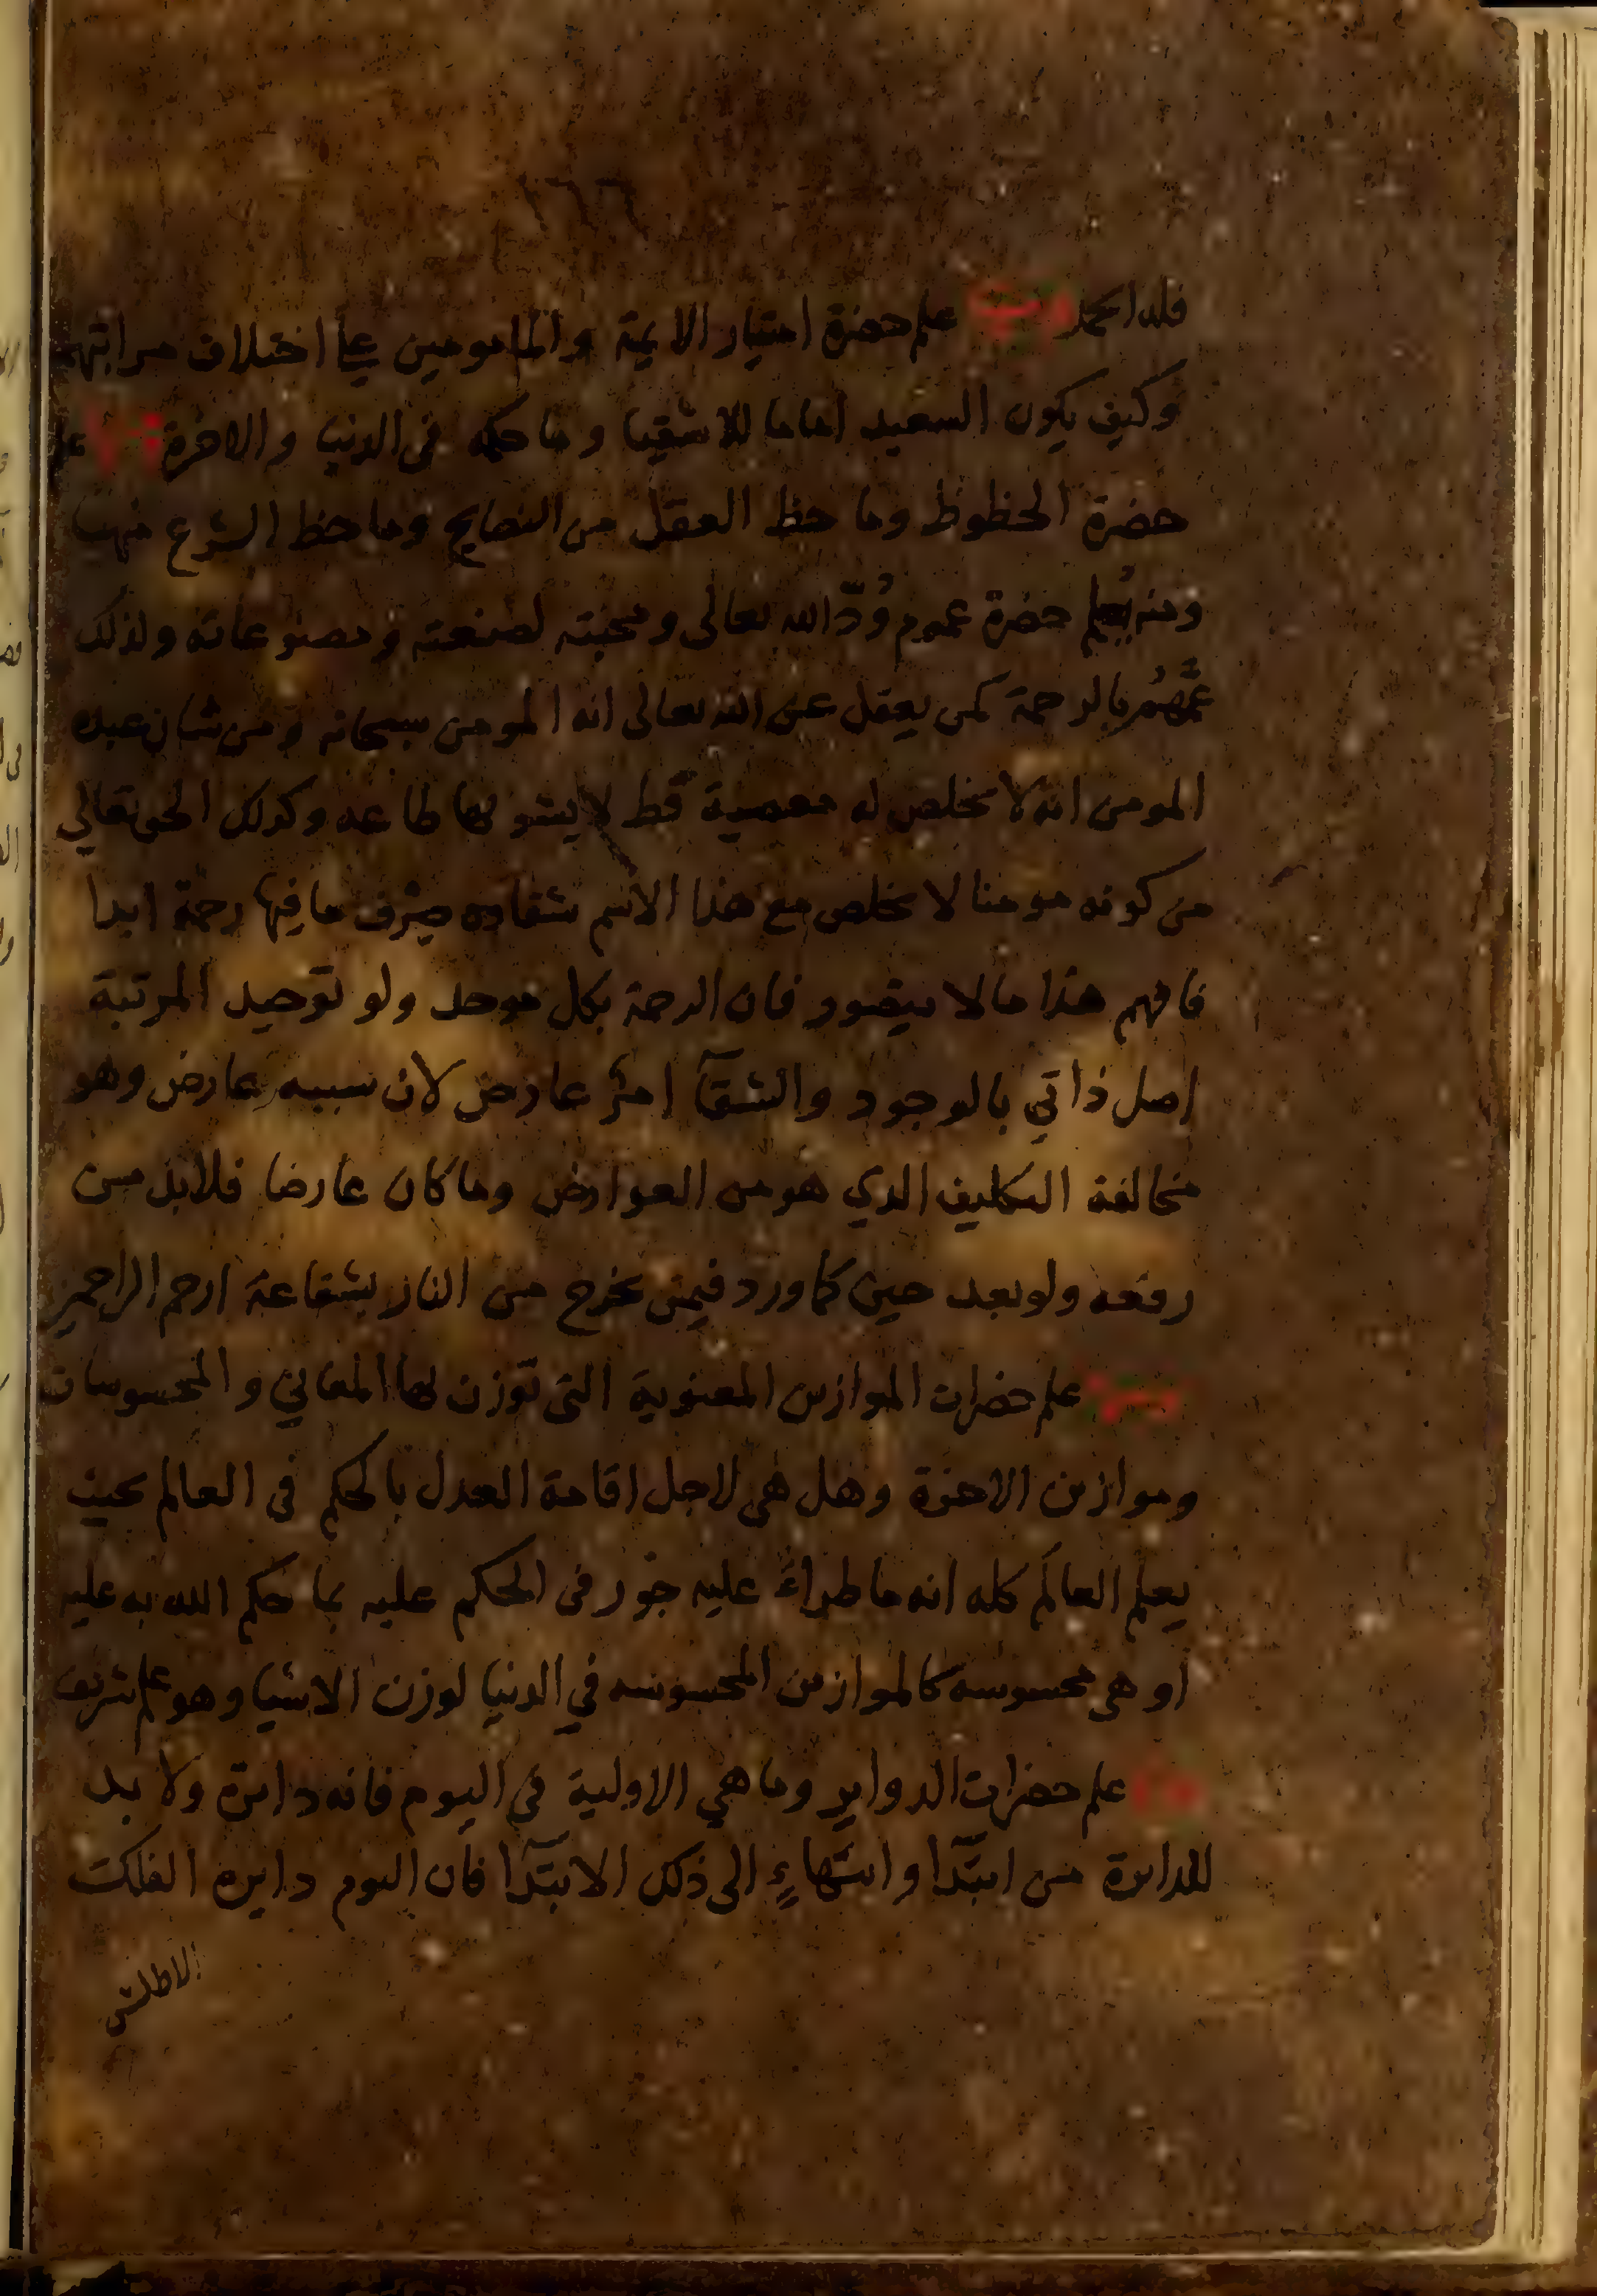 فلله الحمد ومنه علم حضرة امتياز الايمة والمامومين على اختلاف مراتبهم
وكيف يكون السعيد اماما للاشقيا وما حكمه فى الدنيا والاخرة ومنه علم
حضرة الحظوظ وما حظ العقل من النصايح وما حظ الشرع منها
ومنه يعلم حضرة عموم وُدّ الله تعالى ومحبته لصنعته ومصنوعاته ولذلك
عمّهم بالرحمة كمن يعقل عن الله تعالى انه المومن سبحانه ومن شان عبده
المومن انه لا تخلص له معصية قط لا يشوبها طاعه وكذلك الحق تعالي
من كونه مومنا لا يخلص مع هذا الاسم شقاوه صِرْف ما فيها رحمة ابدا
فافهم هذا مالا يتصور فان الرحمة بكل موحد ولو توحيد المرتبة
اصل ذاتي بالوجود والشقآ امرٌ عارض لان سببه عارض وهو
مخالفة التكليف الذي هو من العوارض وما كان عارضا فلابد من
رفعه ولو بعد حين كما ورد فيمن يخرج من النار بشفاعة ارحم الراحمين
ومنه علم حضرات الموازين المعنوية التى توزن بها المعاني والمحسوسات
وموازين الاخرة وهل هى لاجل اقامة العدل بالحكم فى العالم بحيث
يعلم العالم كله انه ما طراءَ عليه جور فى الحكم عليه بما حكم الله به عليه
او هى محسوسه كالموازين المحسوسه في الدنيا لوزن الاشيا وهو علم شريف
علم حضرات الدواير وما هي الاولية فى اليوم فانه دايرة ولا بد
للدايرة من ابتدآ وانتهاءٍ الى ذلك الابتدآ فان اليوم دايره الفلك
الاطلس